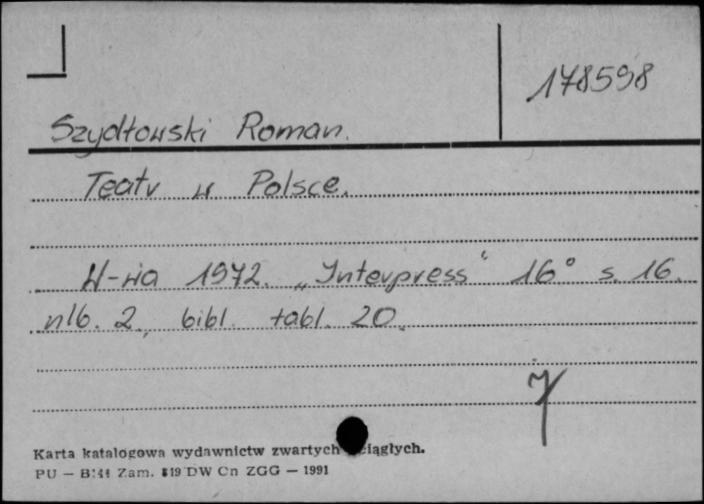 178598
Szydłowski Roman.
Teatr w Polsce.
W-wa 1972. „Interpress" 16° s. 16.
nlb. 2., bibl. tabl. 20.
7
Karta katalogowa wydawnictw zwartych ciągłych.
PU — Zam. 819 DW Cn ZGG — 1991